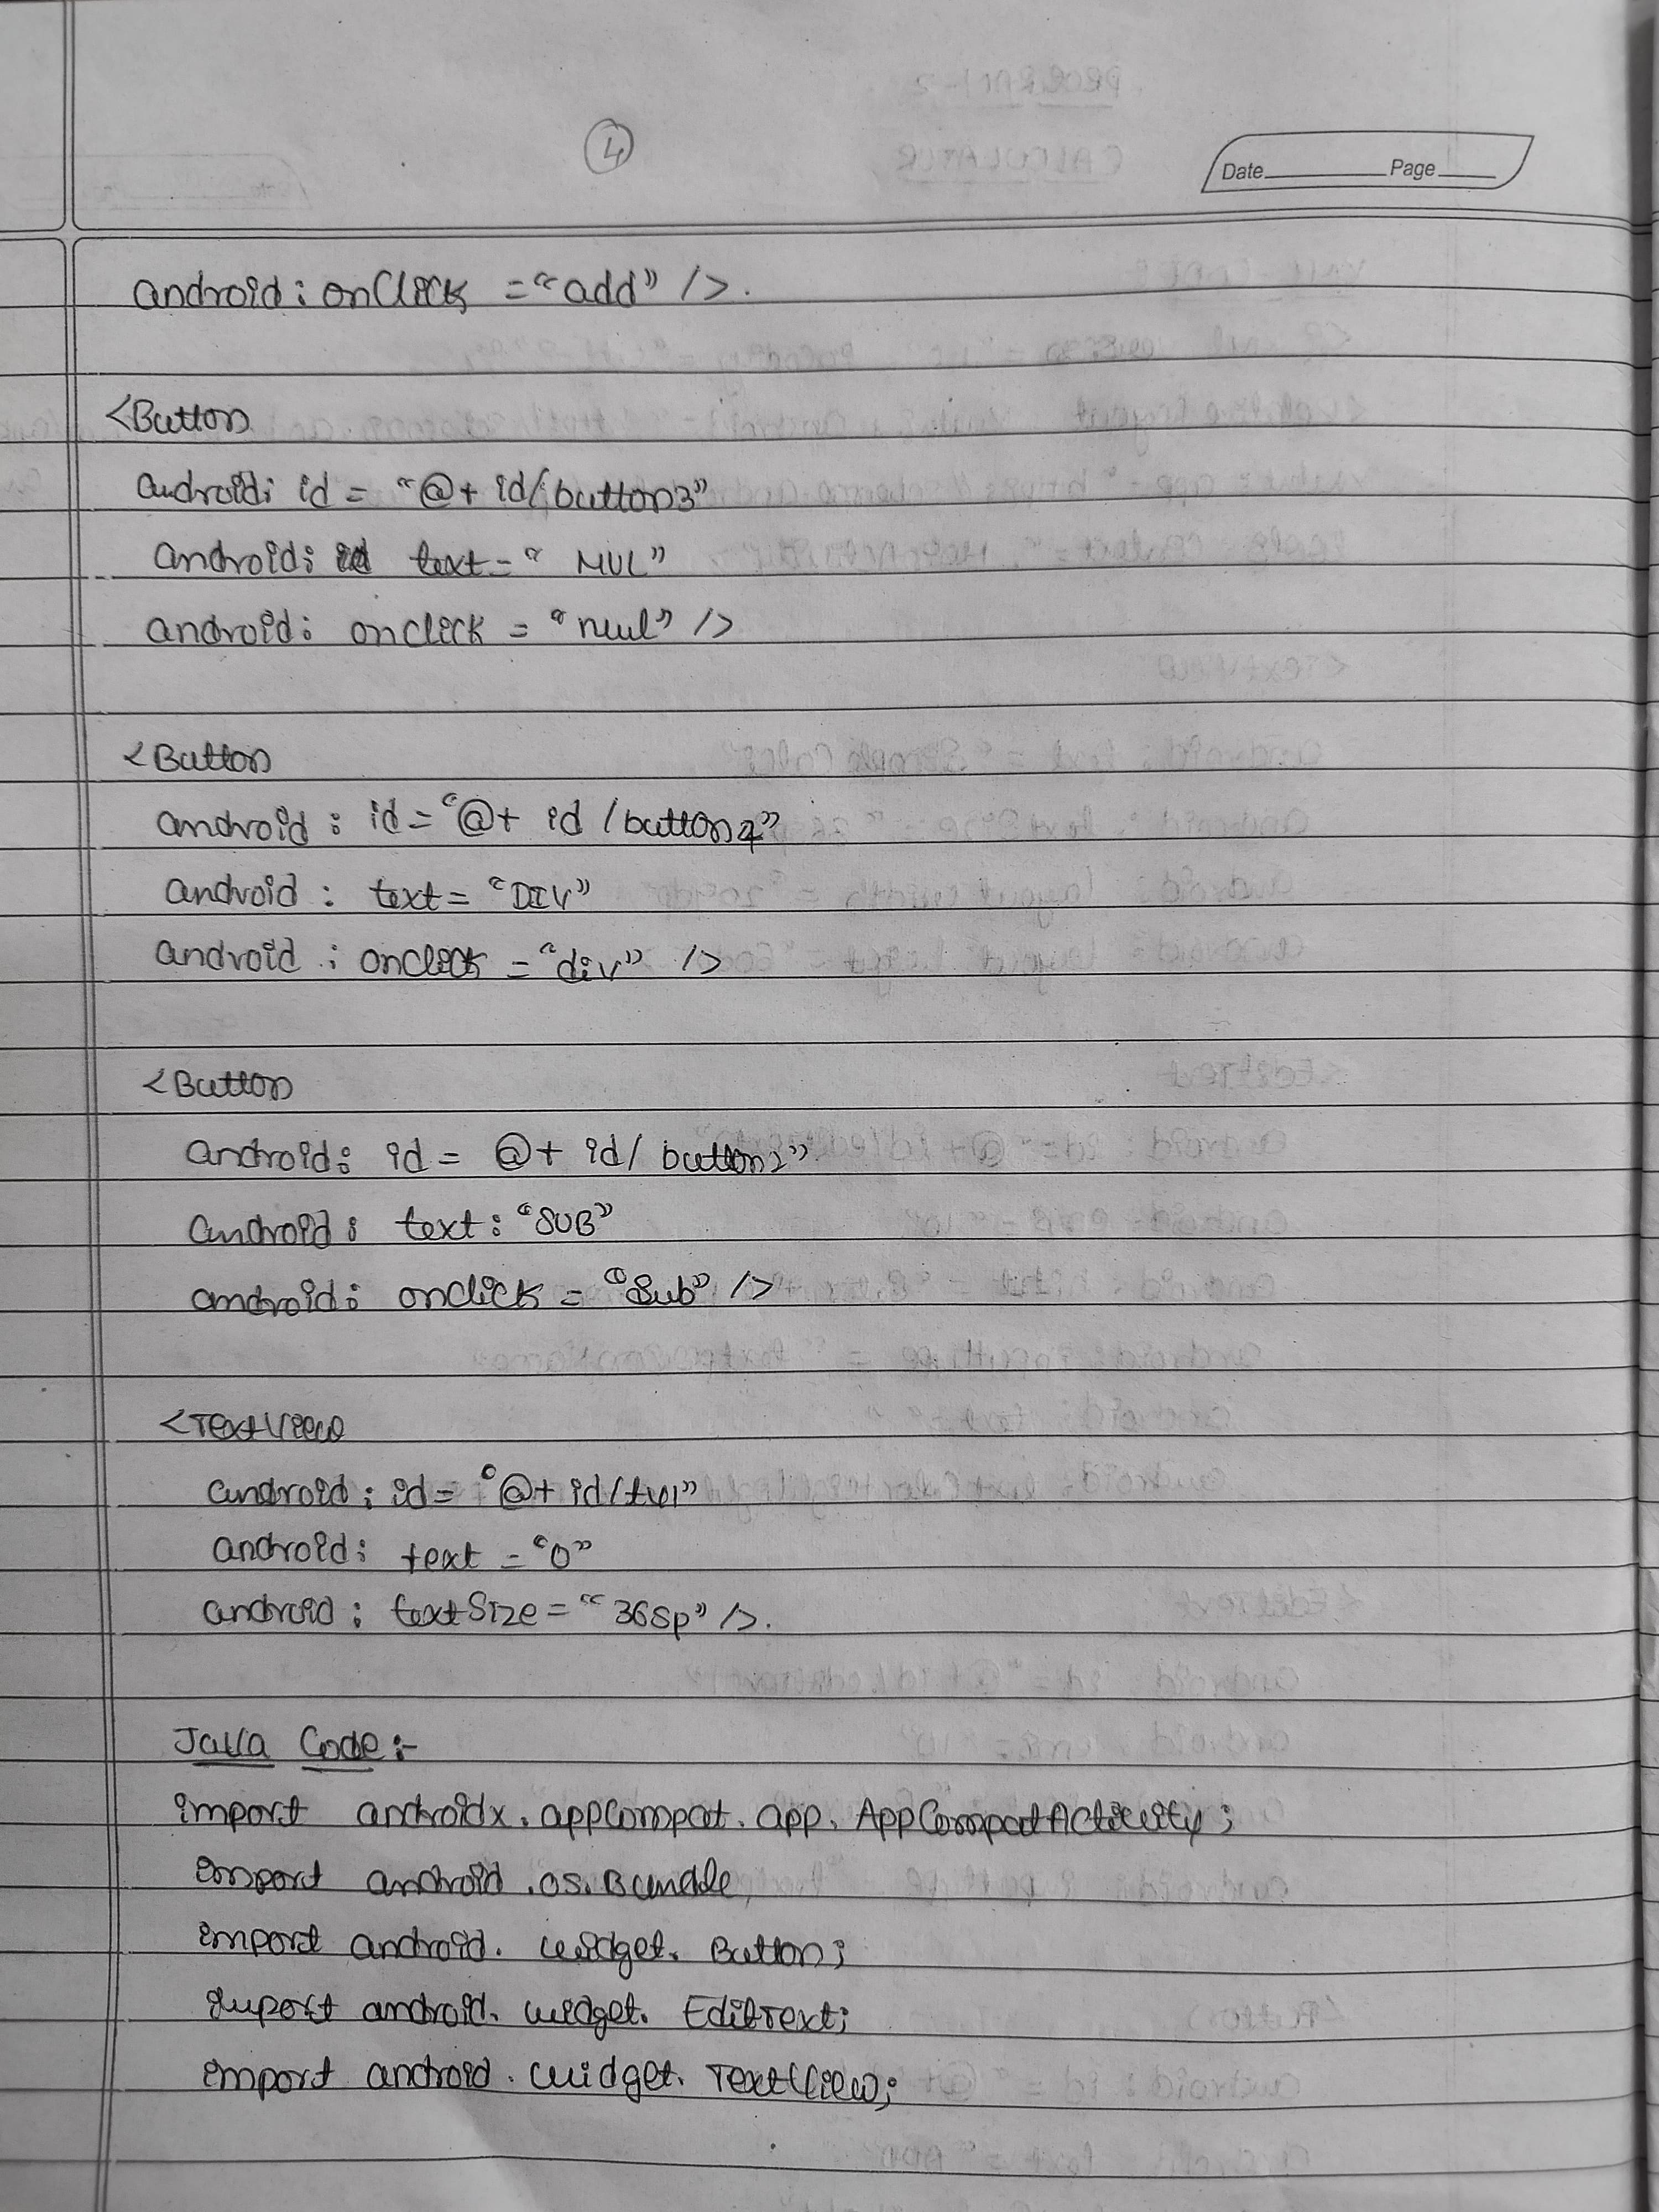 4
Date Page
android: onClick = "add" />.
<Button
android: id = "@+ id/button3"
android: text = " MUL"
android: onclick = "mul" />
<Button
android: id = "@+ id /button4"
android: text = "DIV"
android: onclick = "div" />
<Button
android: id = @+ id/ button2"
android: text: "SUB"
android: onclick = "Sub" />
<TextView
android: id = "@+ id/tv1"
android: text = "0"
android: textSize = "36sp" />.
Java Code :-
import androidx. appCompat. app. AppCompatActivity;
import android .os. Bundle,
import android. widget. Button;
import android. widget. EditText;
import android. widget. TextView;